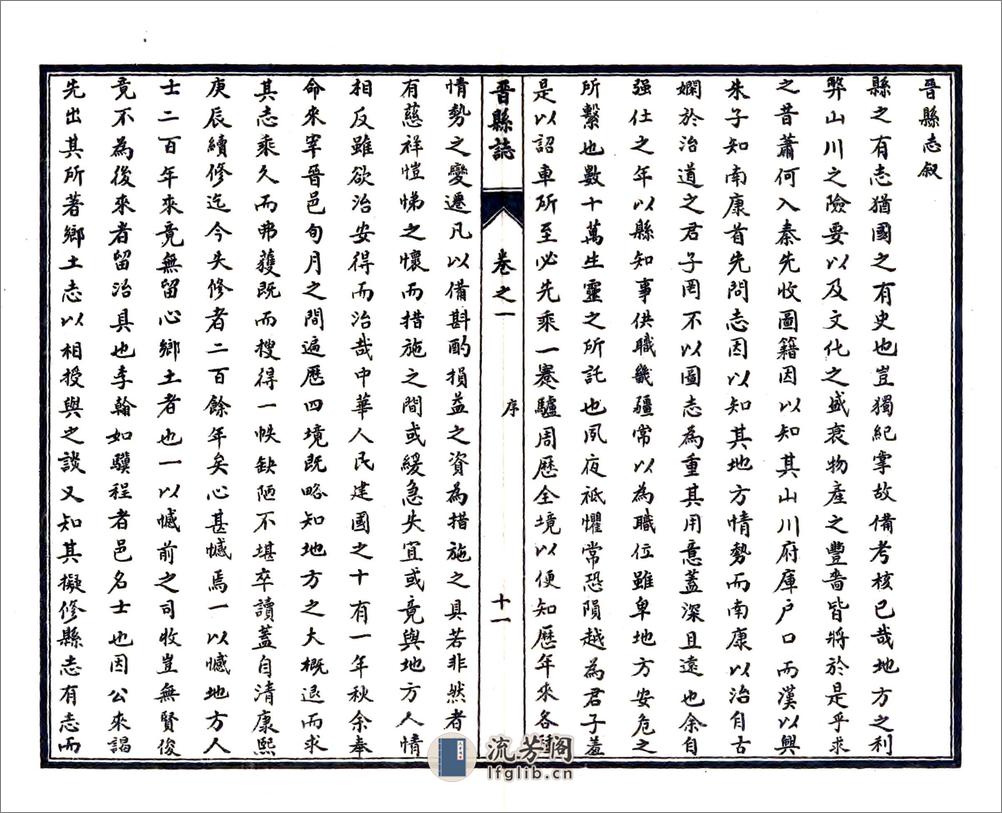 晉縣志叙
縣之有志猶國之有史也豈獨紀掌故備考核已哉地方之利
弊山川之險要以及文化之盛衰物產之豐嗇皆將於是乎求
之昔蕭何入秦先收圖籍因以知其山川府庫户口而漢以興
朱子知南康首先問志因以知其地方情勢而南康以治自古
嫻於治道之君子罔不以圖志為重其用意蓋深且遠也余自
強仕之年以縣知事供職畿疆常以為職位雖卑地方安危之
所繫也數十萬生靈之所託也夙夜祗懼常恐隕越為君子羞
是以詔車所至必先乘一蹇驢周歷全境以便知歷年來各種
晉縣誌
卷之一
序
十一
情勢之變遷凡以備斟酌損益之資為措施之具若非然者
有慈祥愷悌之懷而措施之間或緩急失宜或竟與地方人情
相反雖欲治安得而治哉中華人民建國之十有一年秋余奉
命來宰晉邑旬月之間遍歷四境既略知地方之大概退而求
其志乘久而弗獲既而搜得一帙缺陋不堪卒讀蓋自清康熙
庚辰續修迄今失修者二百餘年矣心甚憾焉一以憾地方人
士二百年來竟無留心鄉土者也一以憾前之司收豈無賢俊
竟不為後來者留治具也李翰如驥程者邑名士也因公來謁
先出其所著鄉土志以相授與之談又知其擬修縣志有志而
流芳阁
lfglib.cn